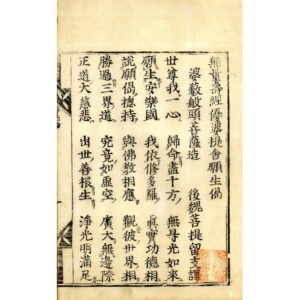 無量壽經優婆提舍願生偈
婆藪般頭菩薩造　後魏菩提留支譯
世尊我一心　歸命盡十方　無㝵光如來
願生安樂國　我依修多羅　眞實功德相
說願偈揔持　與佛教相應　觀彼世界相
勝過三界道　究竟如虛空　廣大無邊際
正道大慈悲　出世善根生　淨光明滿足